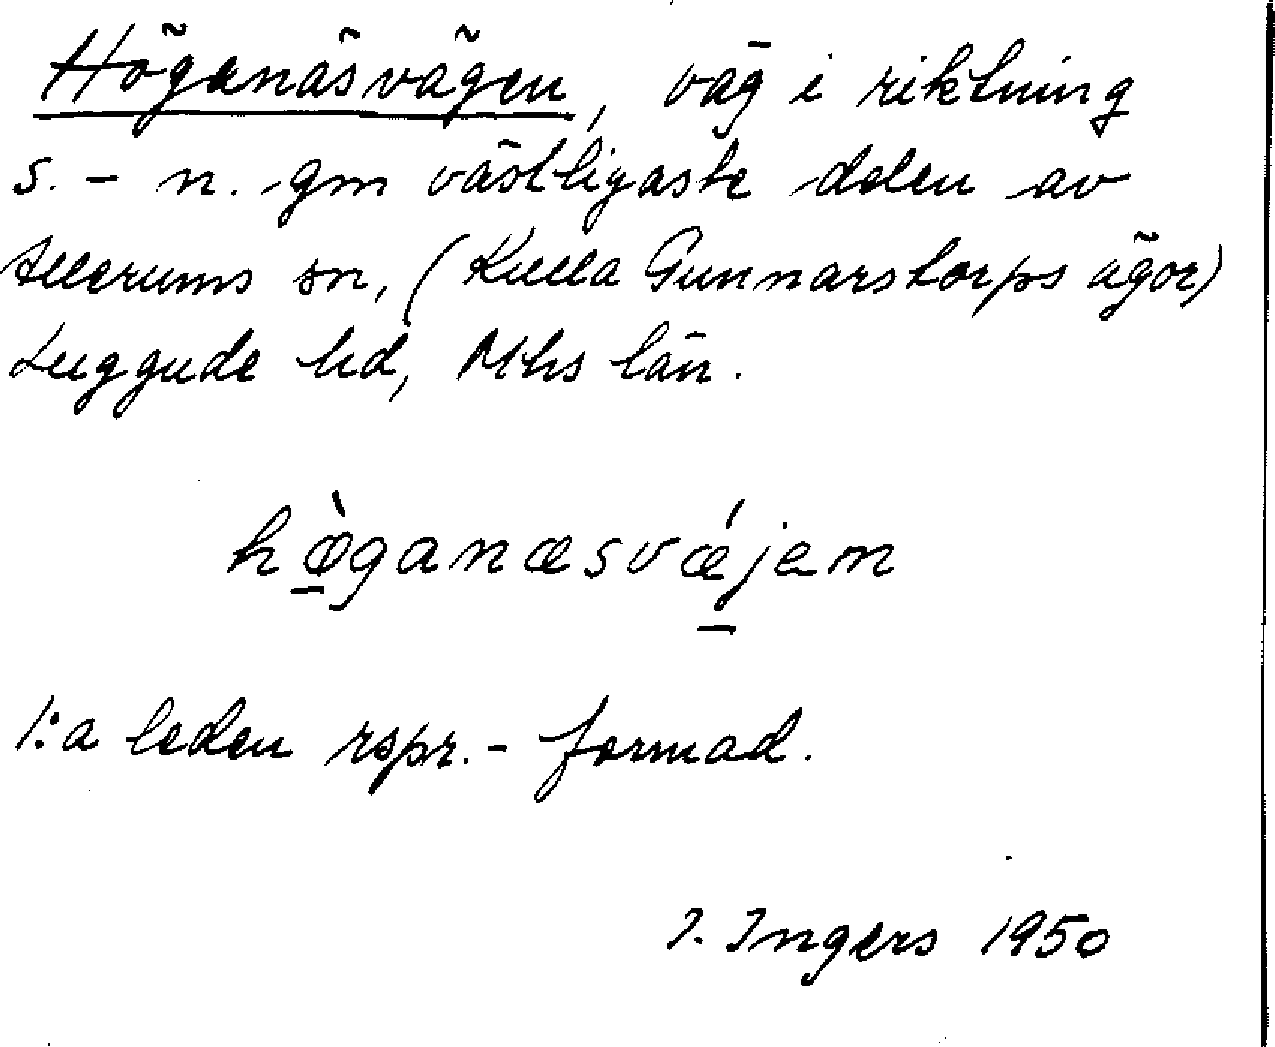 Höganäsvägen, väg i riktning
s. - n. gm västligaste delen av
Allerums sn, (Kulla Gunnarstorps ägor)
Luggude hd, Mhs län.
hø̱̀ganæsvǽ̱jen
1:a leden rspr.- formad.
I. Ingers 1950